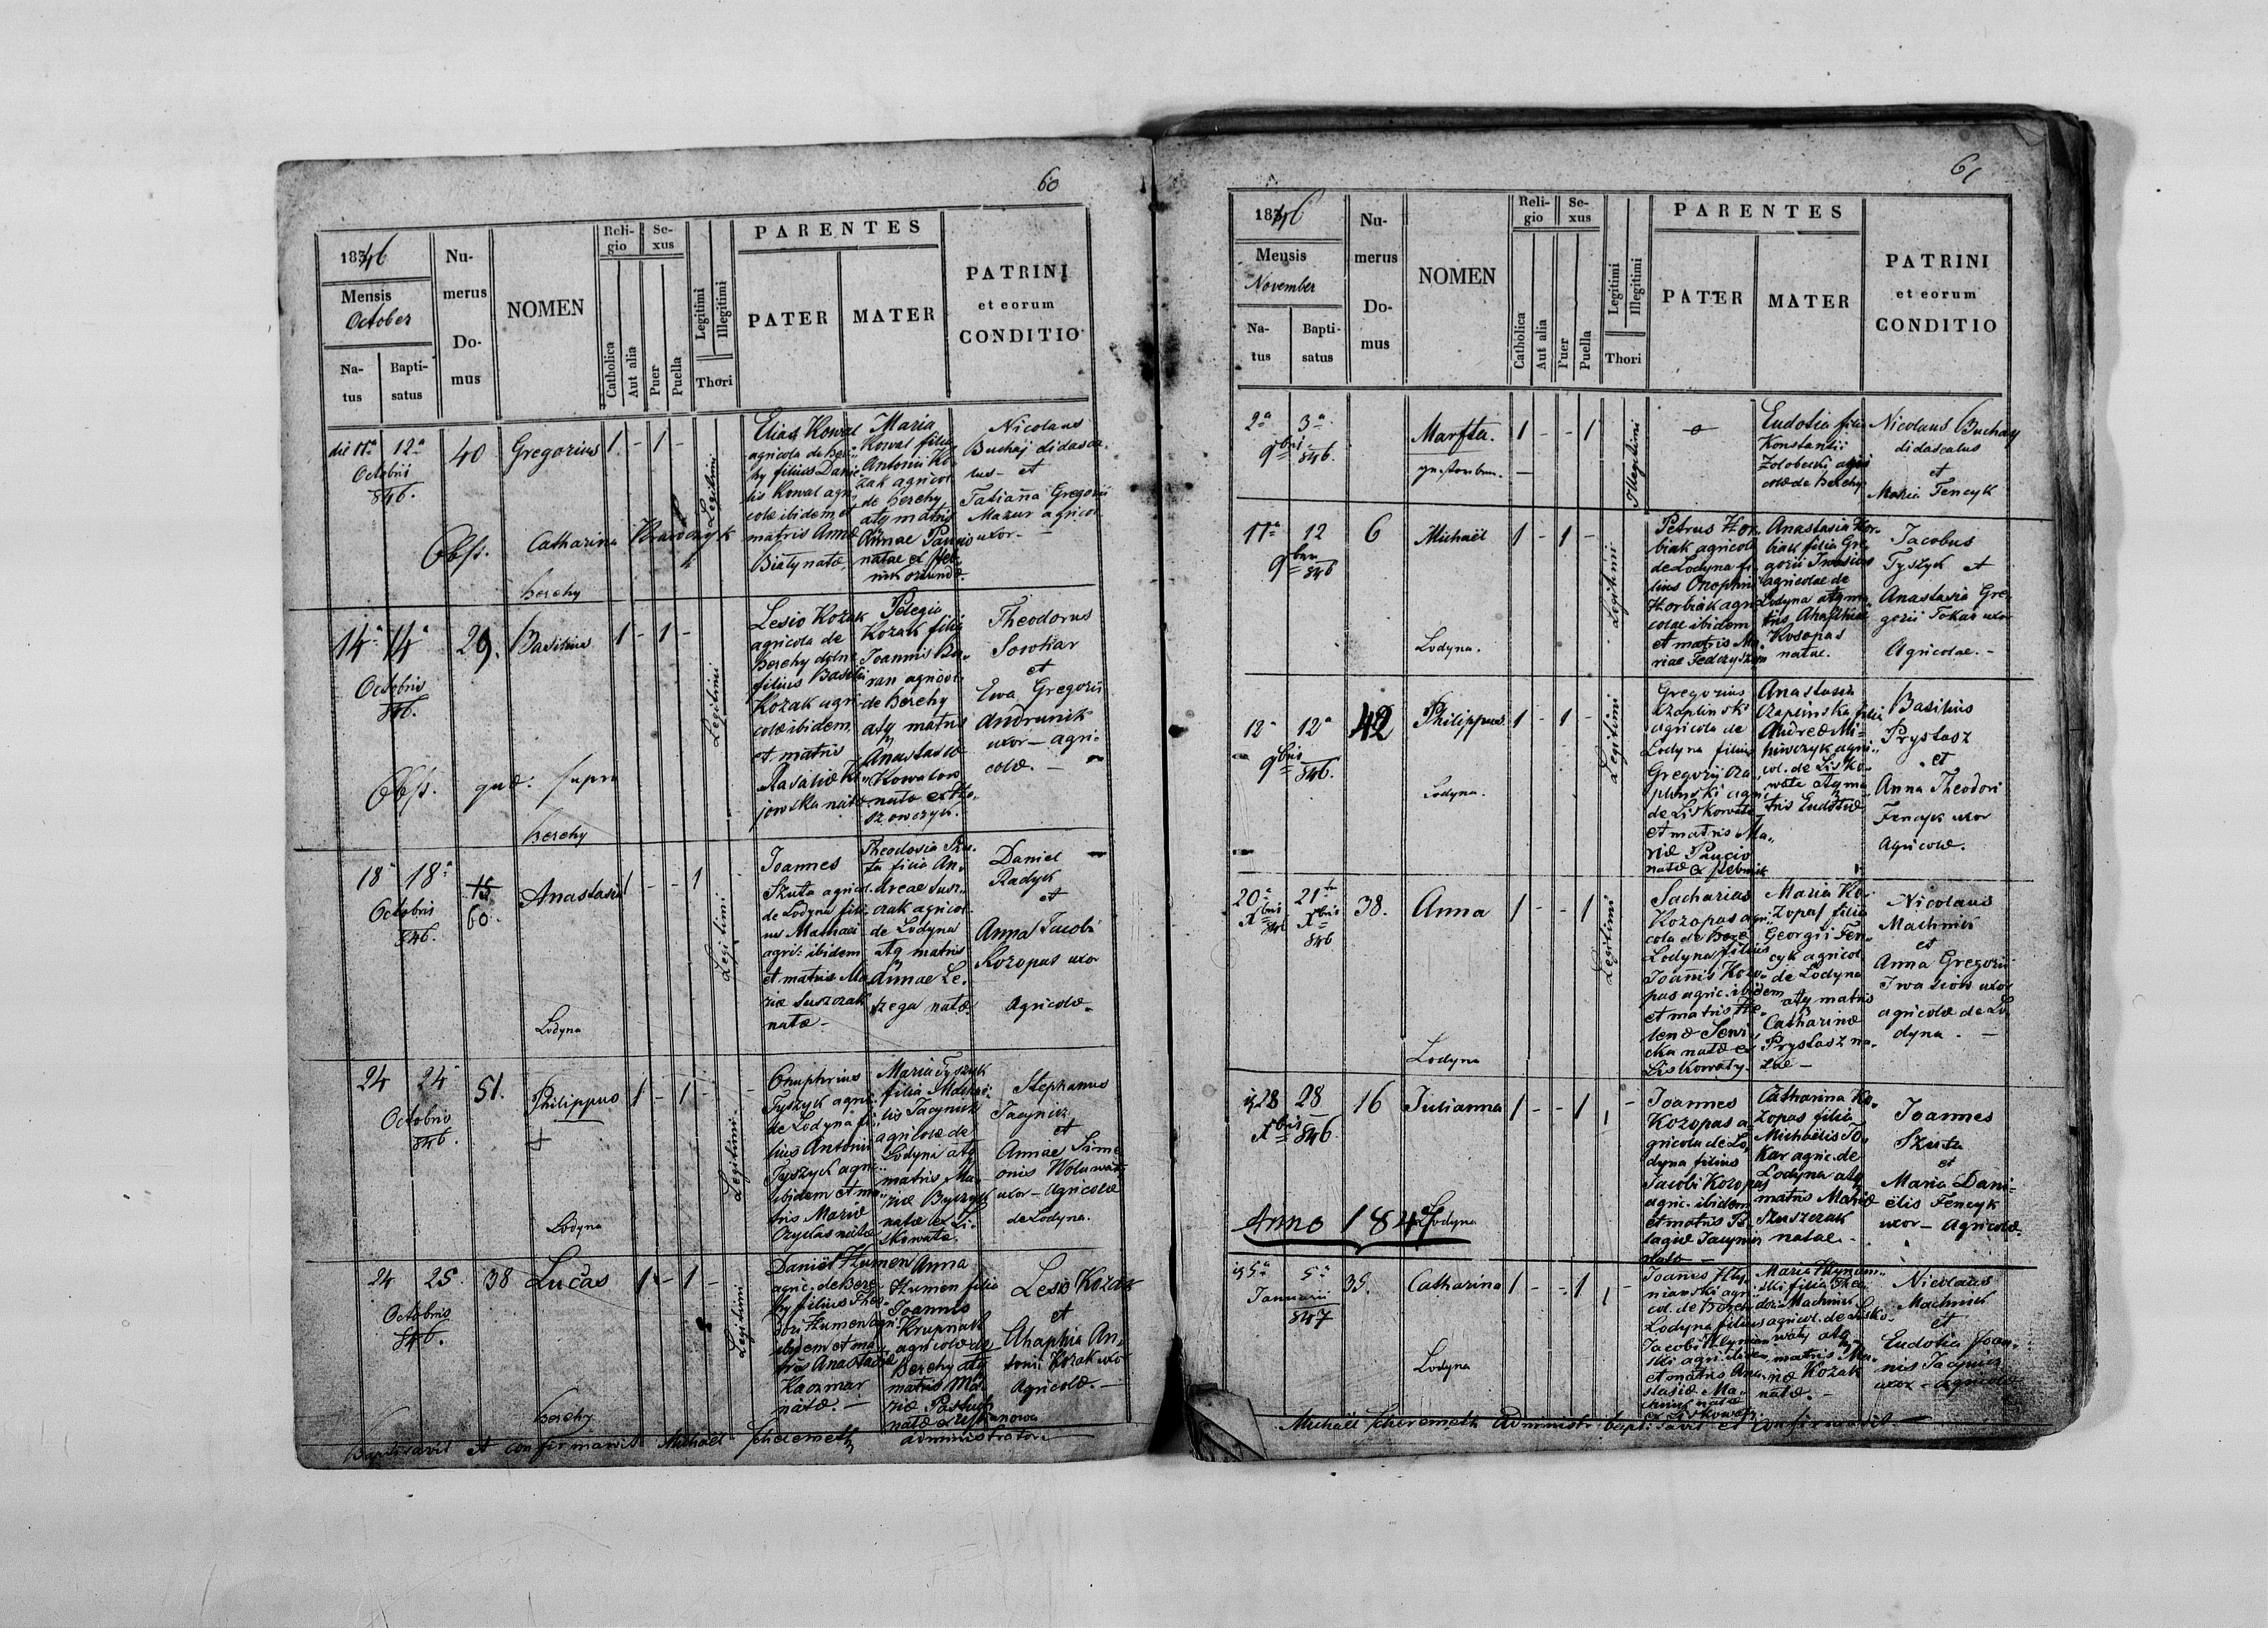 60
1846
Mensis
October
Na-
tus
Bapti-
satus
Nu-
merus
Do-
mus
NOMEN
Reli-
gio
Catholica
Aut alia
Se-
xus
Puer
Puella
Legitimi
Illegitimi
Thori
PARENTES
PATER
MATER
PATRINI
et eorum
CONDITIO
12a
Octobris
846.
40
Gregorius
1 - 1 -
Legitimi
Elias Kowal
agricola de Ber-
hy filius Danie-
lis Kowal agri-
colæ ibidem et
matris Annæ
Biały natæ
Maria
Kowal filia
Antonii Ko-
zak agricol
de Berehy
atq matris
Annae
natae ex
Nicolaus
Buchaj didasca-
lus - et
Tatianna Gregorii
Mazur agricol
uxor. -
Obst. Catharina
Berehy
14a 14a
Octobris
846.
29.
Basilius
1 - 1 -
Legitimi
Lesio Kozak
agricola de
Berehy dolne
filius Basilii
Kozak agri-
colæ ibidem
et matris
Rasaliæ
jowska natæ
Pelagia
Kozak filia
Joannis Ba-
ran agricol
de Berehy
atq matris
Anastasiæ
Kowalow
natæ ex
Theodorus
Sowhar
et
Ewa Gregorii
Andrunik
uxor - agri-
colæ. -
Obst. quæ. supra
Berehy
18a 18a
Octobris
846.
60.
Anastasia
1 - - 1
Legitimi
Joannes
Szuta agricol.
de Lodyna fili-
us Mathaei
agri: ibidem
et matris Ma-
riæ Suszczak
natæ -
Theodosia Szu-
ta filia An-
dreae Susz-
czak agricol
de Lodyna
atq matris
Annae Le-
szega natæ
Daniel
Radyk
et
Anna Jacobi
Kozopas uxor
Agricolæ
Lodyna
24 24
Octobris
846.
51.
Philippus
1 - 1 - -
Legitimi
Onuphrius
Tyszyk agri-
de Lodyna fi-
lius Antonii
Tyszyk agri-
ibidem et ma-
tris Mariæ
natæ
Maria Tyszyk
filia
lis Jacynicz
agricolæ de
Lodyna atq
matris Ma-
riæ
natæ ex Li-
skowate.
Stephanus
Jacynicz
et
Annae Sime-
onis
uxor - Agricolæ
de Lodyna.
Lodyna
24 25.
Octobris
846.
38
Lucas
1 - 1 -
Legitimi
Daniel Humen
agric. de Bere-
hy filius Theo-
dori Humen agri-
ibidem et ma-
tris Anastasiæ
Kaczmar
natæ. -
Anna
Humen filia
Joannis
Krupnach
agricolæ de
Berehy atq
matris Ma-
riæ
natæ ex
Lesio Kozak
et
Ahaphia An-
tonii Kozak uxor
Agricolæ. -
Berehy
Baptisavit et confirmavit Michaël Scheremeth administrator
61
1846
Mensis
November
Na-
tus
Bapti-
satus
Nu-
merus
Do-
mus
NOMEN
Reli-
gio
Catholica
Aut alia
Se-
xus
Puer
Puella
Legitimi
Illegitimi
Thori
PARENTES
PATER
MATER
PATRINI
et eorum
CONDITIO
2a 3a
9bris 846.
Marfta.
1 - - 1
Illegitimi
Eudotia filia
Konstantii
Zolobecki agri-
colæ de Berehy
Nicolaus Buchay
didascalus
et
Maria Fencyk
11a 12
846
6
Michaël
1 - 1 -
Legitimi
Petrus Hor-
biak agricola
de Lodyna fi-
lius Onophrii
Horbiak agri-
colae ibidem
et matris Ma-
riae
Anastasia Hor-
biak filia Gre-
gorii Iwasiow
agricolae de
Lodyna atq ma-
tris Ahaphiae
Kosopas
natae.
Jacobus
Tyszyk et
Anastasia Gre-
gorii Tokar uxor
Agricolae. -
Lodyna.
12a 12a
9bris 846.
42
Philippus
1 - 1 -
Legitimi
Gregorius
Czaplinski
agricola de
Lodyna filius
Gregorii Cza-
plinski agri-
de Liskowate
et matris Ma-
riæ
natæ ex
Anastasia
Czaplinska filia
Andreæ Mi-
agri-
col. de Lisko-
wate atq ma-
tris Eudotiæ
Basilius
Prystasz
et
Anna Theodori
Fencyk uxor
Agricolæ.
Lodyna.
20a 21
Xbris 846
38.
Anna
1 - - 1
Legitimi
Sacharias
Kozopas agri-
cola de
Lodyna filius
Joannis Kozo-
pas agric. ibidem
et matris He-
lenæ
natæ ex
Liskowaty.
Maria Ko-
zopas filia
Georgii Fen-
cyk agricol
de Lodyna
atq matris
Catharinæ
Prystasz na-
tæ -
Nicolaus
Machnik
et
Anna Gregorii
Iwasiow uxor
agricolæ de Lo-
dyna. -
Lodyna
28 28
Xbris 846.
16
Julianna
1 - - 1
Joannes
Kozopas a-
gricola de Lo-
dyna filius
Jacobi Kozopas
agric. ibidem
et matris Pe-
lagiæ Jacynicz
natæ
Catharina Ko-
zopas filia
Michaëlis To-
kar agric. de
Lodyna atq
matris Mariæ
Szuszczak
natae. -
Joannes
Szuta
et
Maria Dani-
ëlis Fencyk
uxor - Agricolæ
Lodyna
Anno 1847
5a
Januarii
847
35.
Catharina
1 - - 1
Joannes
agri-
col. de
Lodyna filius
Jacobi
ski agri ibidem
et matris Ana-
stasiæ Ma-
natæ
ex Liskowaty.
Maria
ski filia Theo-
dori Machnik
agricol. de Lisko-
waty atq
matris Ma-
riæ Kozak
natæ. -
Nicolaus
Machnik
et
Eudotia Joan-
nis Jacynicz
uxor - agricolæ
Lodyna
Michaël Scheremeth administr: baptisavit et confirmavit